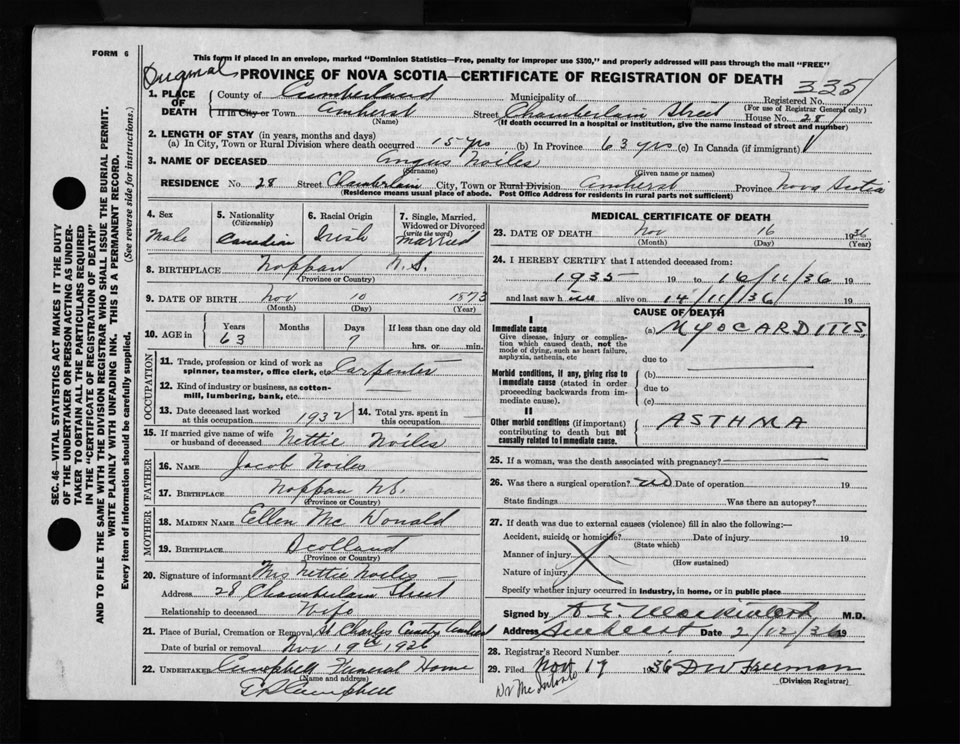 FORM 6
This form if placed in an envelope, marked "Dominion Statistics—Free, penalty for improper use $300," and properly addressed will pass through the mail "FREE"
Original
PROVINCE OF NOVA SCOTIA—CERTIFICATE OF REGISTRATION OF DEATH
335
1. PLACE OF DEATH
County of Cumberland Municipality of Registered No.
(For use of Registrar General only)
If in City or Town Amherst Street Chamberlain Street House No. 28
(Name) (If death occurred in a hospital or institution, give the name instead of street and number)
2. LENGTH OF STAY (in years, months and days)
(a) In City, Town or Rural Division where death occurred 15 yrs (b) In Province 63 yrs (c) In Canada (if immigrant)
3. NAME OF DECEASED Angus Noiles
(Surname) (Given name or names)
RESIDENCE No. 28 Street Chamberlain City, Town or Rural Division Amherst Province Nova Scotia
(Residence means usual place of abode. Post Office Address for residents in rural parts not sufficient)
4. Sex
Male
5. Nationality
(Citizenship)
Canadian
6. Racial Origin
Irish
7. Single, Married, Widowed or Divorced
(write the word)
Married
8. BIRTHPLACE Nappan N.S.
(Province or Country)
9. DATE OF BIRTH Nov 10 1873
(Month) (Day) (Year)
10. AGE in
Years Months Days If less than one day old
63 7 hrs. or min.
OCCUPATION
11. Trade, profession or kind of work as spinner, teamster, office clerk, etc. Carpenter
12. Kind of industry or business, as cotton-mill, lumbering, bank, etc.
13. Date deceased last worked at this occupation 1932
14. Total yrs. spent in this occupation
15. If married give name of wife or husband of deceased Nettie Noiles
FATHER
16. NAME Jacob Noiles
17. BIRTHPLACE Nappan N.S.
(Province or Country)
MOTHER
18. MAIDEN NAME Ellen Mc Donald
19. BIRTHPLACE Scotland
(Province or Country)
20. Signature of informant Mrs Nettie Noiles
Address 28 Chamberlain Street
Relationship to deceased Wife
21. Place of Burial, Cremation or Removal St Charles County Amherst
Date of burial or removal Nov 19th 1936
22. UNDERTAKER Campbell Funeral Home
(Name and address)
Campbell
MEDICAL CERTIFICATE OF DEATH
23. DATE OF DEATH Nov 16 1936
(Month) (Day) (Year)
24. I HEREBY CERTIFY that I attended deceased from:
1935 19 to 16/11/36 19
and last saw him alive on 14/11/36 19
CAUSE OF DEATH
I
Immediate cause
Give disease, injury or complication which caused death, not the mode of dying, such as heart failure, asphyxia, asthenia, etc
(a) MYOCARDITIS
due to
Morbid conditions, if any, giving rise to immediate cause (stated in order proceeding backwards from immediate cause).
(b)
due to
(c)
II
Other morbid conditions (if important) contributing to death but not causally related to immediate cause.
ASTHMA
25. If a woman, was the death associated with pregnancy?
26. Was there a surgical operation? no Date of operation 19
State findings Was there an autopsy?
27. If death was due to external causes (violence) fill in also the following:—
Accident, suicide or homicide? Date of injury 19
(State which)
Manner of injury
(How sustained)
Nature of injury
Specify whether injury occurred in Industry, in home, or in public place
Signed by A E Mackintosh M.D.
Address Amherst Date 2/12/36 19
28. Registrar's Record Number
29. Filed Nov 19 1936 DW Freeman
(Division Registrar)
Dr McIntosh
SEC. 46—VITAL STATISTICS ACT MAKES IT THE DUTY
OF THE UNDERTAKER OR PERSON ACTING AS UNDER-
TAKER TO OBTAIN ALL THE PARTICULARS REQUIRED
IN THE "CERTIFICATE OF REGISTRATION OF DEATH"
AND TO FILE THE SAME WITH THE DIVISION REGISTRAR WHO SHALL ISSUE THE BURIAL PERMIT.
WRITE PLAINLY WITH UNFADING INK. THIS IS A PERMANENT RECORD.
Every item of information should be carefully supplied. (See reverse side for instructions.)